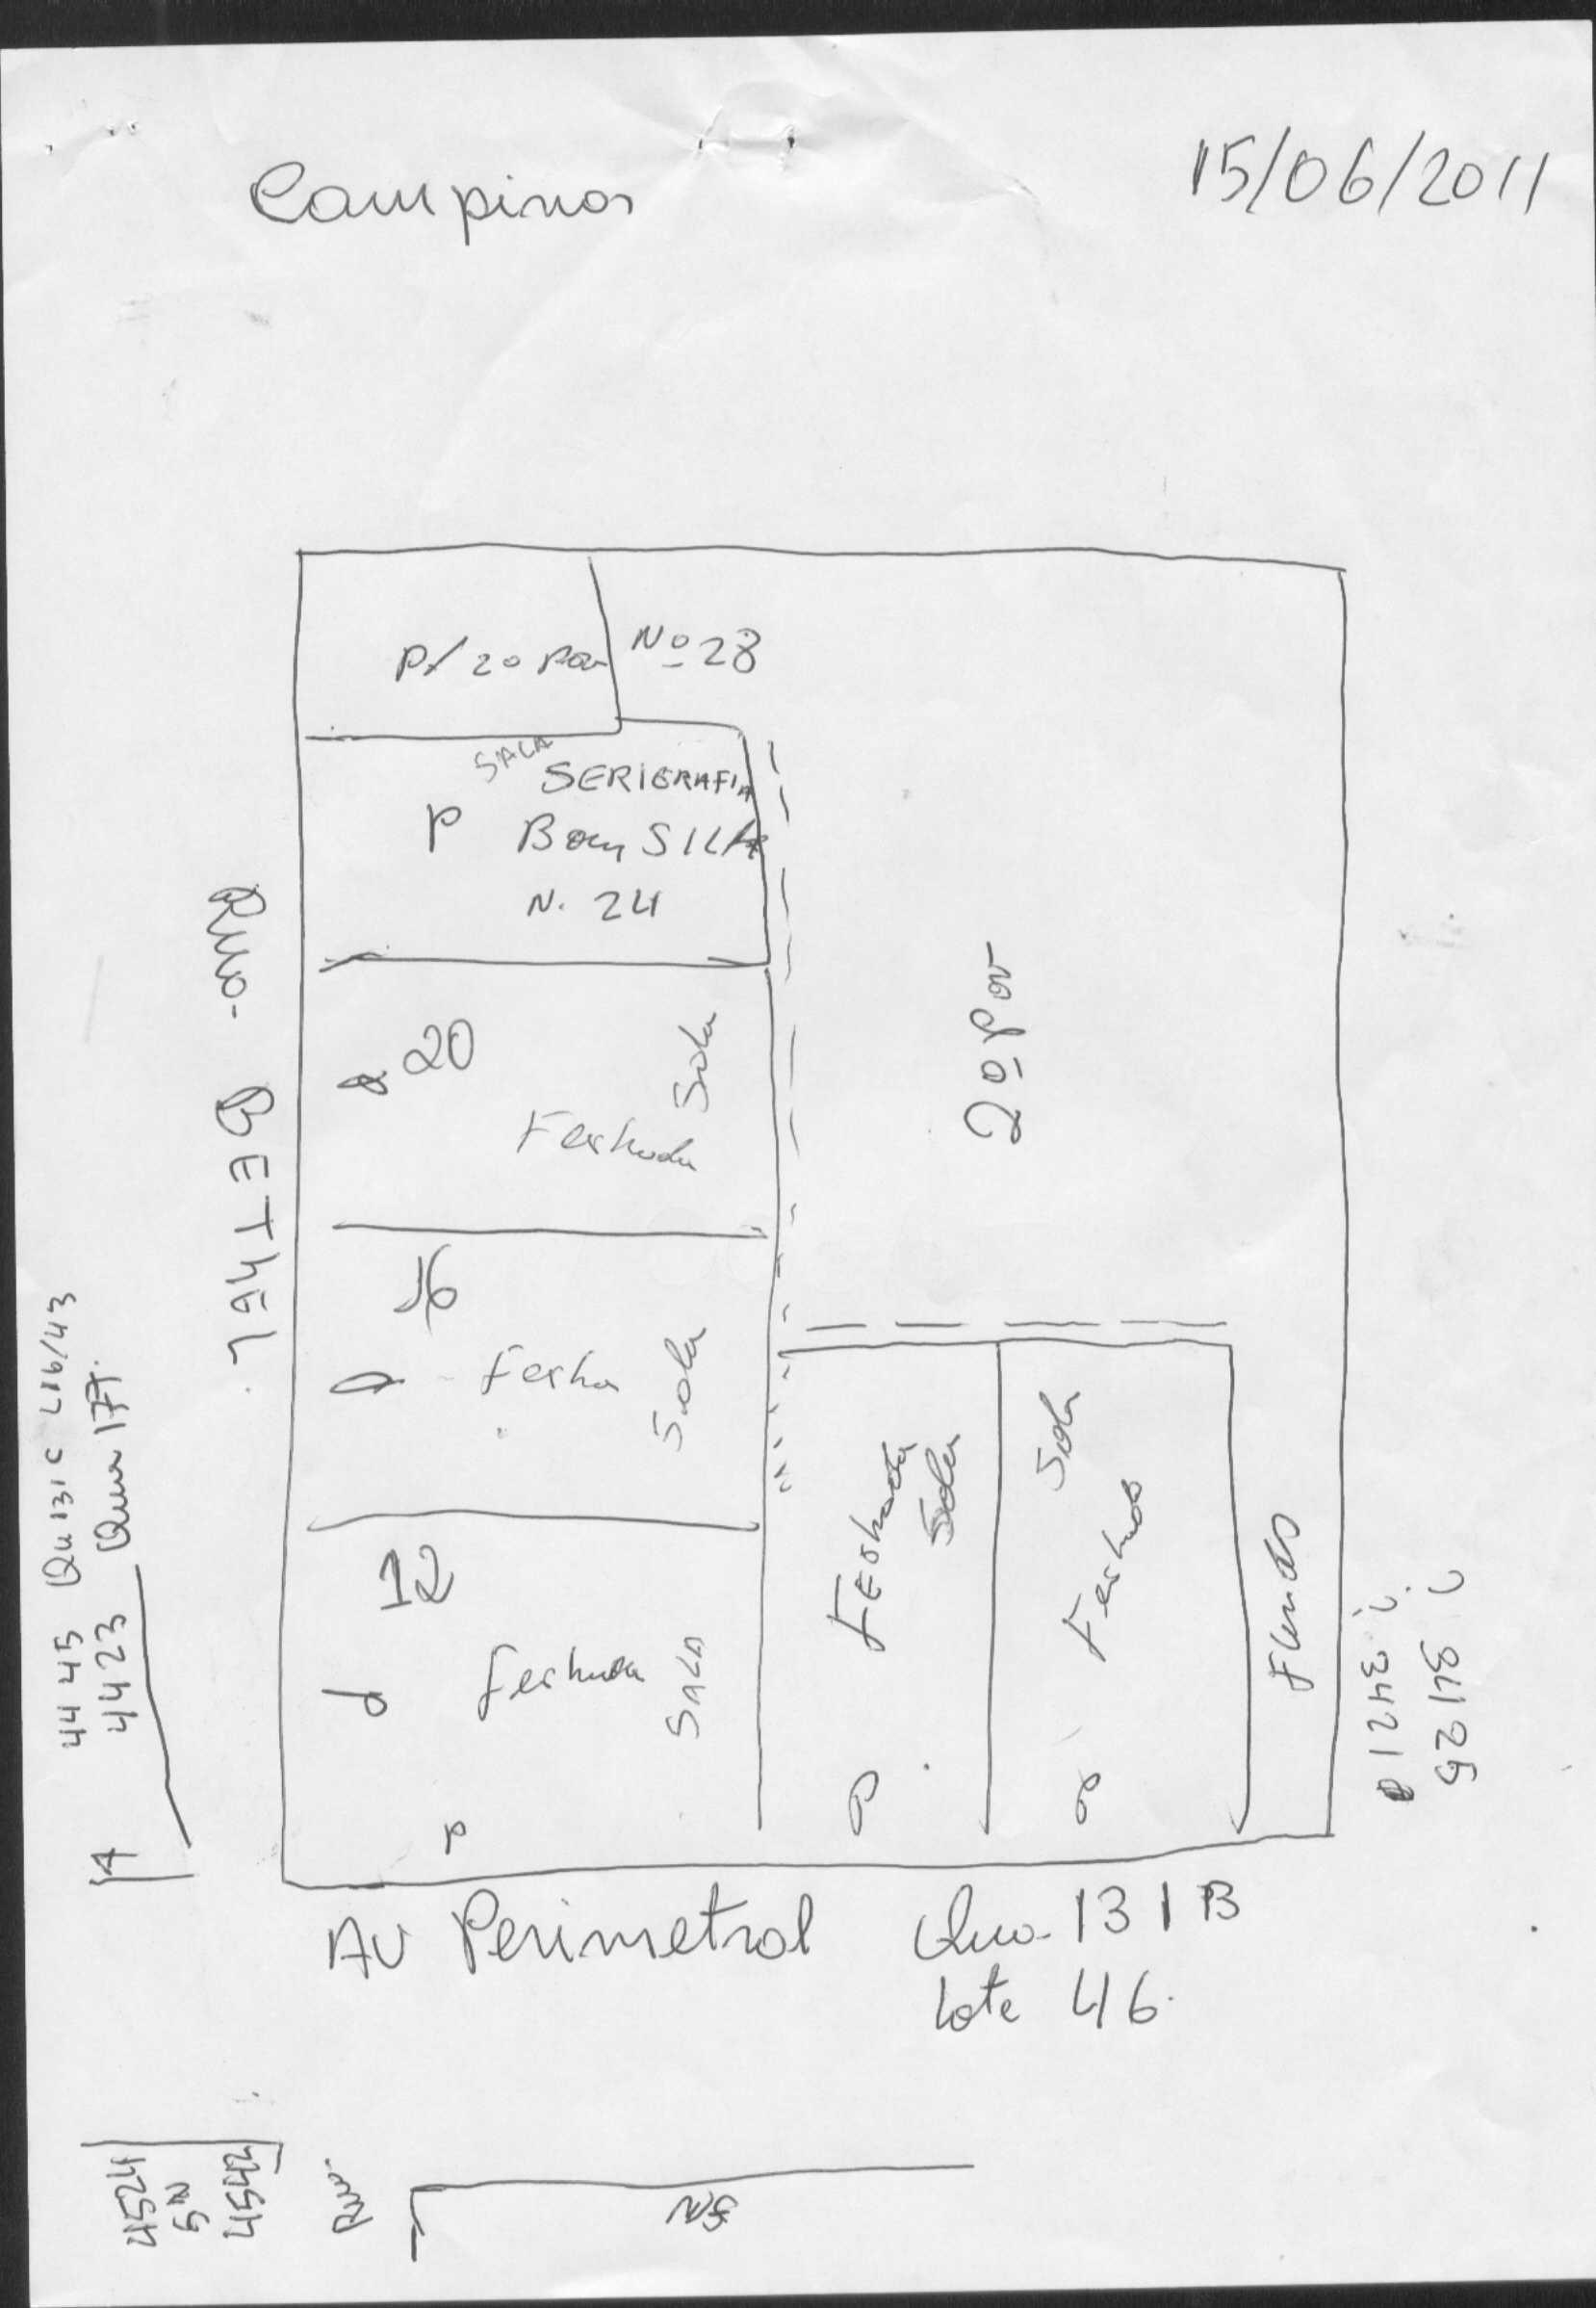 Campinas
15/06/2011
P/ 2o Pav
Nº 28
SALA
SERIGRAFIA
P Bom SILK
N. 24
Rua- BETHEL
20
Sala
Fechada
2º Pav
16
Fecha
Sala
12
Fechada
SALA
P
Fechada
Sala
Sala
Fechada
Fundos
4445 Qu 131 C L16/43
4423 Qua 177.
3421
AV Perimetral
Qua- 131 B
Lote 46.
4524
SN
4542
Rua.